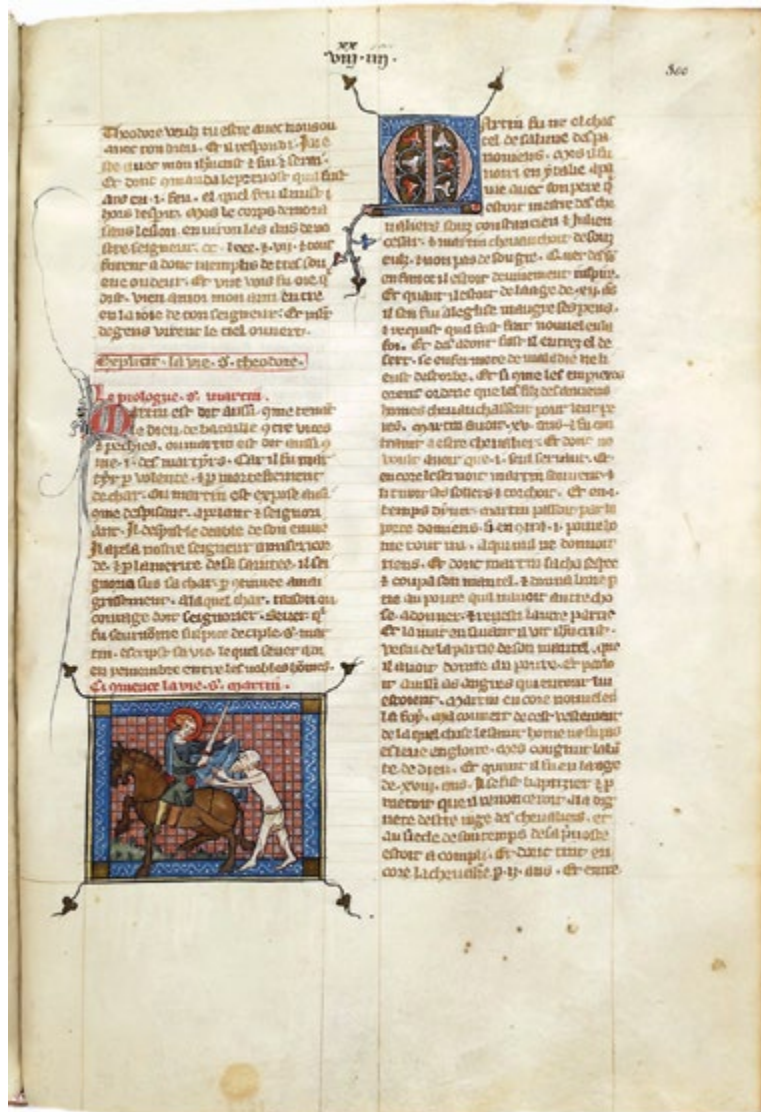 xx
.viij.iiij.
300
Theodore veulz tu estre avec nous ou
avec ton dieu. Et il respondi. Ie
avec mon ihucrist & fui & serai.
Et donc
en .i. feu. el quel feu il
hors lespir. Mes le corps demora
sans lesion. environ les ans de no
stre seigneur. cc. iiii.xx. & vii. & tout
furent a donc raemplis de tres sou
eue oudeur. Et une vois fu oie. q
dist. vien a moi mon ami entre
en la ioie de ton seigneur. Et plus
de gens virent le ciel ouvert.
Explicit. la vie. s. theodore.
Le prologue. s. martin.
Martin est dit aussi
le dieu de bataille 9tre vices
& pechies. ou martin est dit aussi 9
me .i. des martyrs. Car il fu mar
tyr p volente. & p mortefiement
de char. Ou martin est expose aussi
9me despisant.
ant. Il despist le deable de son envie
Il apela nostre seigneur a misericor
de. & p la merite de sa saintee. il sei
gnoria sus sa char. p 9tinuee amai
grissement. a la quel char. raison ou
courage doit seignorier. Sever. q
fu seurnome sulpice deciple. s. mar
tin. escript sa vie. le quel sever
en remembre entre les nobles homes.
Ci 9mence la vie. s. martin.
Martin fu ne el chas
tel de sabarie de pa
noniens. Mes il fu
norri en ytalie a pa
vie avec son pere q
estoit mestre des che
valiers souz constancien & iulien
cesar. & martin chevauchoit de souz
eulz. & non pas de son gre. Quer des
enfance il estoit devinement inspire.
Et quant il estoit de laage de .xii. ans
il sen fui a leglise maugre ses parens.
& requist quil fust fait nouvel en la
foi. Et des adont fust il entre el de
sert. se enfermete de maladie ne li
eust destorbe. Et si que les empereors
eurent ordene que les filz des anciens
homes chevauchassent pour leur pe
res. Martin avoit .xv. ans. & fu con
traint a estre chevalier. Et donc ne
voult avoir que .i. seul serviant. Et
encore le servoit martin souvent. &
li traoit ses sollers & torchoit. Et en .i.
temps dyver. martin passoit par la
porte damiens. si encontra .i. povre ho
me tout nu. a qui nul ne donnoit
riens. Et donc martin sacha sespee
& coupa son mantel. & donna lune p
tie au povre qui navoit autre cho
se a donner. & revesti lautre partie.
Et la nuit ensivant il vit ihucrist.
vestu de la partie de son mantel. que
il avoit donne au povre. Et
aussi as angres qui entour lui
estoient. Martin encore nouvel en
la foy. ma couvert de cest vestement
de la quel chose le saint home ne fu pas
esleve en gloire. Mes congnut la bon
te de dieu. Et quant il fu en laage
de .xviii. ans. il se fist baptizier. & p
metoit que il renonceroit a la dig
nete destre iuge des chevaliers. et
au siecle. se son temps de sa pvoste
estoit acompli. Et donc tint en
core la chevalerie p .ii. ans. Et entre